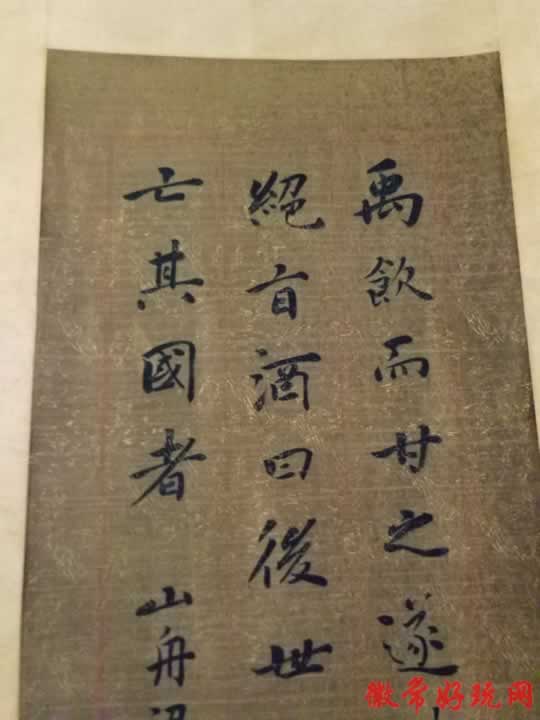 禹飲而甘之遂
絕旨酒曰後世
亡其國者 山舟
徽常好玩网